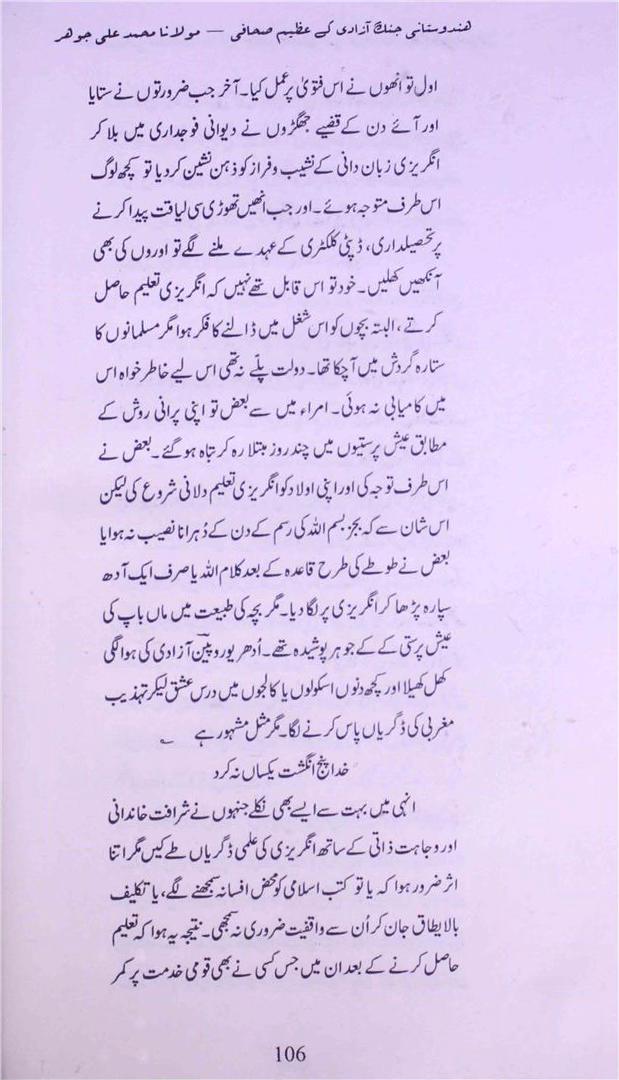 هندوستانی جنگ آزادی کے عظیم صحافی — مولانا محمد علی جوهر
اول تو انھوں نے اس فتویٰ پر عمل کیا۔ آخر جب ضرورتوں نے ستایا
اور آئے دن کے قضیے جھگڑوں نے دیوانی فوجداری میں بلا کر
انگریزی زبان دانی کے نشیب و فراز کو ذہن نشین کر دیا تو کچھ لوگ
اس طرف متوجہ ہوئے۔ اور جب انھیں تھوڑی سی لیاقت پیدا کرنے
پر تحصیلداری، ڈپٹی کلکٹری کے عہدے ملنے لگے تو اوروں کی بھی
آنکھیں کھلیں۔ خود تو اس قابل تھے نہیں کہ انگریزی تعلیم حاصل
کرتے، البتہ بچوں کو اس شغل میں ڈالنے کا فکر ہوا مگر مسلمانوں کا
ستارہ گردش میں آ چکا تھا۔ دولت پلّے نہ تھی اس لیے خاطر خواہ اس
میں کامیابی نہ ہوئی۔ امراء میں سے بعض تو اپنی پرانی روش کے
مطابق عیش پرستیوں میں چند روز مبتلا رہ کر تباہ ہو گئے۔ بعض نے
اس طرف توجہ کی اور اپنی اولاد کو انگریزی تعلیم دلانی شروع کی لیکن
اس شان سے کہ بجز بسم اللہ کی رسم کے دن کے دُہرانا نصیب نہ ہوا یا
بعض نے طوطے کی طرح قاعدہ کے بعد کلام اللہ یا صرف ایک آدھ
سپارہ پڑھا کر انگریزی پر لگا دیا۔ مگر بچہ کی طبیعت میں ماں باپ کی
عیش پرستی کے کے جوہر پوشیدہ تھے۔ اُدھر یوروپین آزادی کی ہوا لگی
کھل کھیلا اور کچھ دنوں اسکولوں یا کالجوں میں درس عشق لیکر تہذیب
مغربی کی ڈگریاں پاس کرنے لگا۔ مگر مثل مشہور ہے ؎
خدا پنج انگشت یکساں نہ کرد
انہی میں بہت سے ایسے بھی نکلے جنہوں نے شرافت خاندانی
اور وجاہت ذاتی کے ساتھ انگریزی کی علمی ڈگریاں طے کیں مگر اتنا
اثر ضرور ہوا کہ یا تو کتب اسلامی کو محض افسانہ سمجھنے لگے، یا تکلیف
بالا یطاق جان کر اُن سے واقفیت ضروری نہ سمجھی۔ نتیجہ یہ ہوا کہ تعلیم
حاصل کرنے کے بعد ان میں جس کسی نے بھی قومی خدمت پر کمر
106